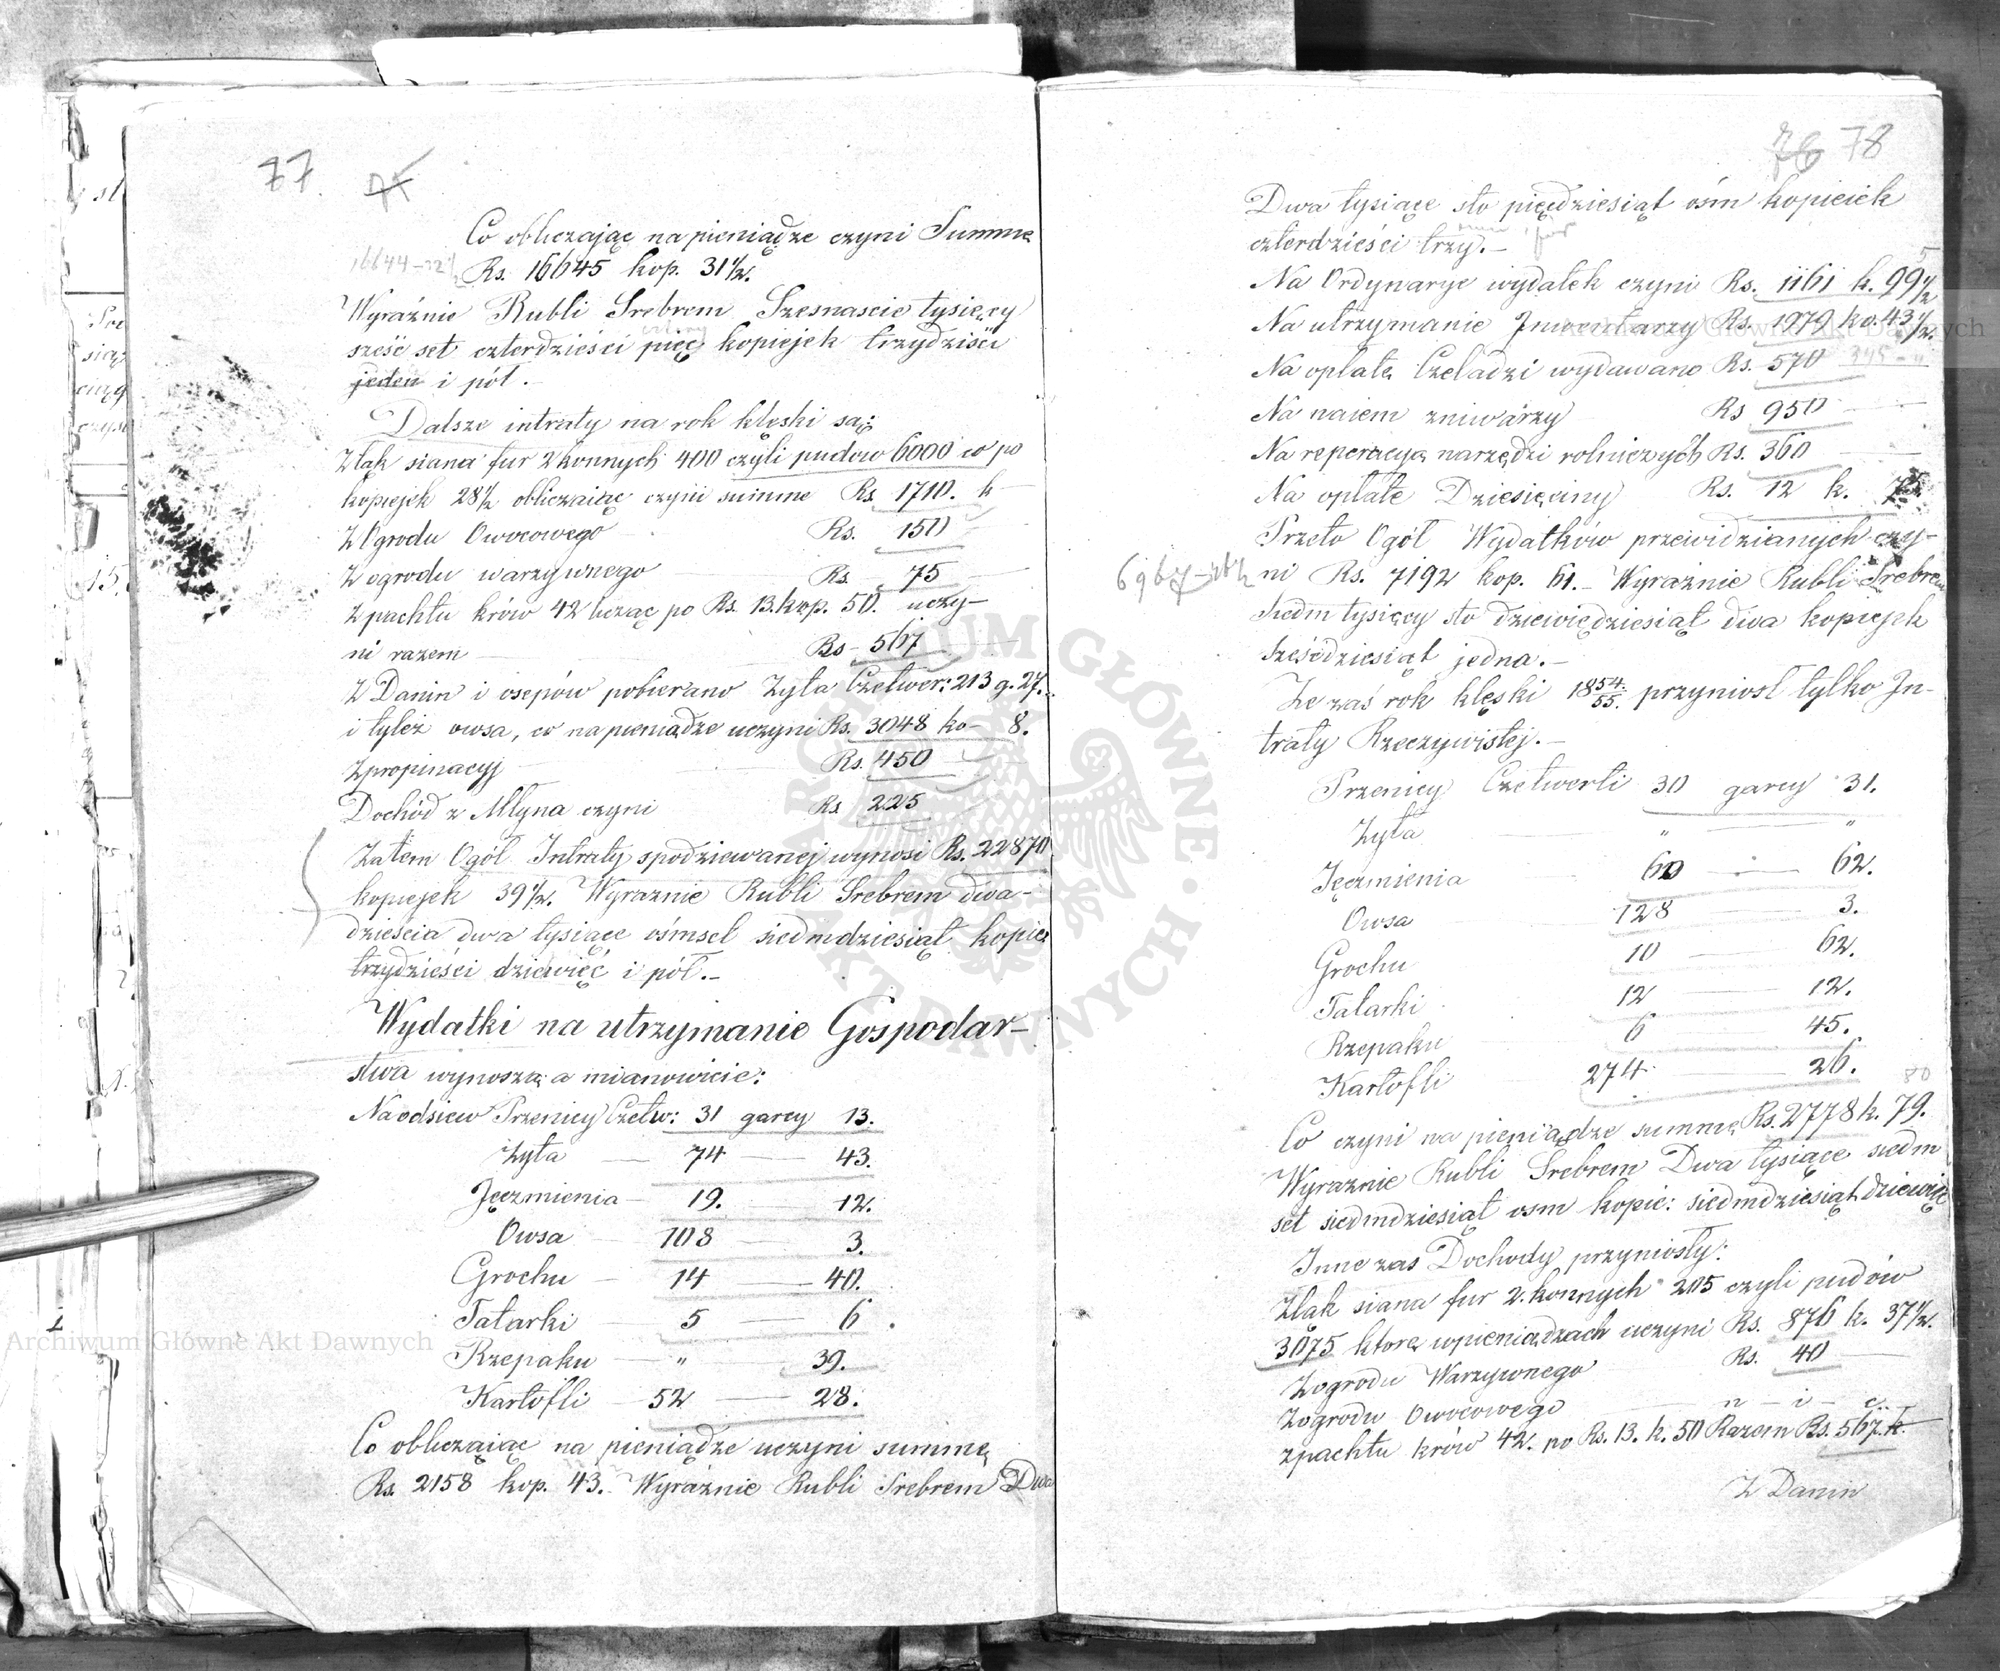 77.
Co obliczając na pieniądze czyni Summę
16644-32½ Rs. 16645 kop. 31½.
Wyraźnie Rubli Srebrem Szesnascie tysięcy
cztery
sześć set czterdzieści pięć kopiejek trzydziści
jeden i pół.-
Dalsze intraty na rok klęski są:
Z łąk siana fur 2 konnych 400 czyli pudow 6000 co po
kopiejek 28½ obliczaiąc czyni summe Rs. 1710. k-
Z Ogrodu Owocowego Rs. 150
Z ogrodu warzywnego Rs. 75
Z pachtu krów 42 licząc po Rs. 13. kop. 50. uczy-
ni razem Rs 567
Z Danin i osepów pobierano Żyta Czetwer: 213 g. 27.
i tyleż owsa, co na pieniądze uczyni Rs. 3048 ko- 8.
Z propinacyj Rs. 450
Dochód z Młyna czyni Rs 225
Zatem Ogół Intraty spodziewanej wynosi Rs. 22870
kopiejek 39½. Wyraznie Rubli Srebrem dwa-
dzieścia dwa tysiące ośmset siedmdziesiąt kopie
trzydzieści dziewięć i pół.-
Wydatki na utrzymanie Gospodar-
stwa wynoszą a mianowicie:
Na odsiew Przenicy Czetw: 31 garcy 13.
Żyta 74 43.
Jęczmienia 19. 12.
Owsa 108 3.
Grochu 14 40.
Tatarki 5 6.
Rzepaku " 39.
Kartofli 52 28.
Co obliczając na pieniądze uczyni summę
Rs. 2158 kop. 43. Wyraźnie Rubli Srebrem Dwa
76 78
Dwa tysiące sto pięćdziesiąt ośm kopieiek
czterdzieści trzy.-
Na Ordynarye wydatek czyni Rs. 1161 k. 99½
Na utrzymanie Inwentarzy Rs. 1979 ko. 43½.
Na opłatę Czeladzi wydawano Rs. 570 345 - "
Na naiem żniwárzy Rs 950
Na reperacyą narzędzi rolniczych Rs. 360
Na opłate Dziesięciny Rs. 12 k. 75
Przeto Ogół Wydatków przewidzianych czy-
ni Rs. 7192 kop. 61.- Wyraźnie Rubli Srebrem
siedm tysięcy sto dziewiędziesiąt dwa kopiejek
sześćdziesiąt jedna.-
Że zaś rok klęski 1854/55. przyniosł tylko In-
traty Rzeczywistej.-
Przenicy Czetwerti 30 garcy 31.
Żyta " "
Jęczmienia 60 62.
Owsa 128 3.
Grochu 10 62.
Tatarki 12 12.
Rzepaku 6 45.
Kartofli 274 26.
80
Co czyni na pieniądze summę Rs. 2778 k. 79.
Wyraznie Rubli Srebrem Dwa tysiące siedm
set siedmdziesiąt osm kopie: siedmdziesiąt dziewięć
Inne zas Dochody przyniosły:
Z łąk siana fur 2. konnych 205 czyli pudów
3075 które w pieniądzach uczyni Rs. 876 k. 37½.
Z ogrodu Warzywnego Rs. 40
Z ogrodu Owocowego n - i - c.
z pachtu krów 42. po Rs. 13. k. 50 Razem Rs. 567. k.
Z Danin
Archiwum Główne Akt Dawnych
Archiwum Główne Akt Dawnych
ARCHIWUM GŁÓWNE · AKT DAWNYCH ·